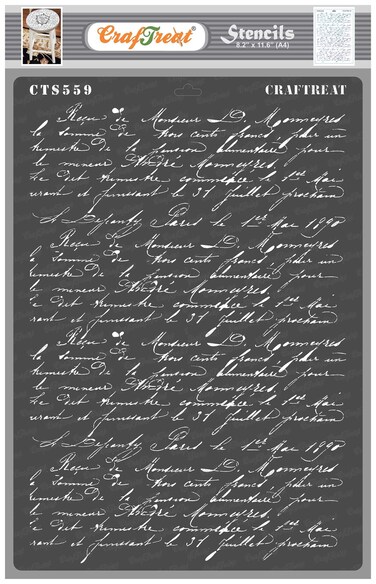 CrafTreat
Stencils
8.2" x 11.6" (A4)
CTS559
CRAFTREAT
Reçu de Monsieur D. Monmeyres
la somme de trois cents francs, pour un
trimestre de la pension alimentaire pour
le mineur André Monmeyres.
Le dit trimestre commence le 1er Mai
et finissant le 31 juillet prochain
Paris le 1er Mai 1890
Reçu de Monsieur D. Monmeyres
la somme de trois cents francs, pour un
trimestre de la pension alimentaire pour
le mineur André Monmeyres.
le dit trimestre commence le 1er Mai
et finissant le 31 juillet prochain
Reçu de Monsieur D. Monmeyres
la somme de trois cents francs, pour un
trimestre de la pension alimentaire pour
le mineur André Monmeyres.
Le dit trimestre commence le 1er Mai
et finissant le 31 juillet prochain
Paris le 1er Mai 1890
Reçu de Monsieur D. Monmeyres
la somme de trois cents francs, pour un
trimestre de la pension alimentaire pour
le mineur André Monmeyres.
le dit trimestre commence le 1er Mai
et finissant le 31 juillet prochain